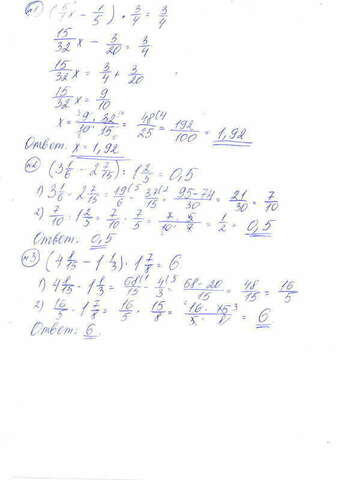 №1 (5/8 x - 1/5) · 3/4 = 3/4
15/32 x - 3/20 = 3/4
15/32 x = 3/4 + 3/20
15/32 x = 9/10
x = 9 · 32/10 · 15 = 48/25 = 192/100 = 1,92
Ответ. x = 1,92
№2 (3 1/6 - 2 7/15) : 1 2/5 = 0,5
1) 3 1/6 - 2 7/15 = 19/6 - 37/15 = 95-74/30 = 21/30 = 7/10
2) 7/10 : 1 2/5 = 7/10 : 7/5 = 7 · 5/10 · 7 = 1/2 = 0,5
Ответ: 0,5
№3 (4 8/15 - 1 1/3) · 1 7/8 = 6
1) 4 8/15 - 1 1/3 = 68/15 - 4/3 = 68-20/15 = 48/15 = 16/5
2) 16/5 · 1 7/8 = 16/5 · 15/8 = 16 · 15/5 · 8 = 6
Ответ: 6